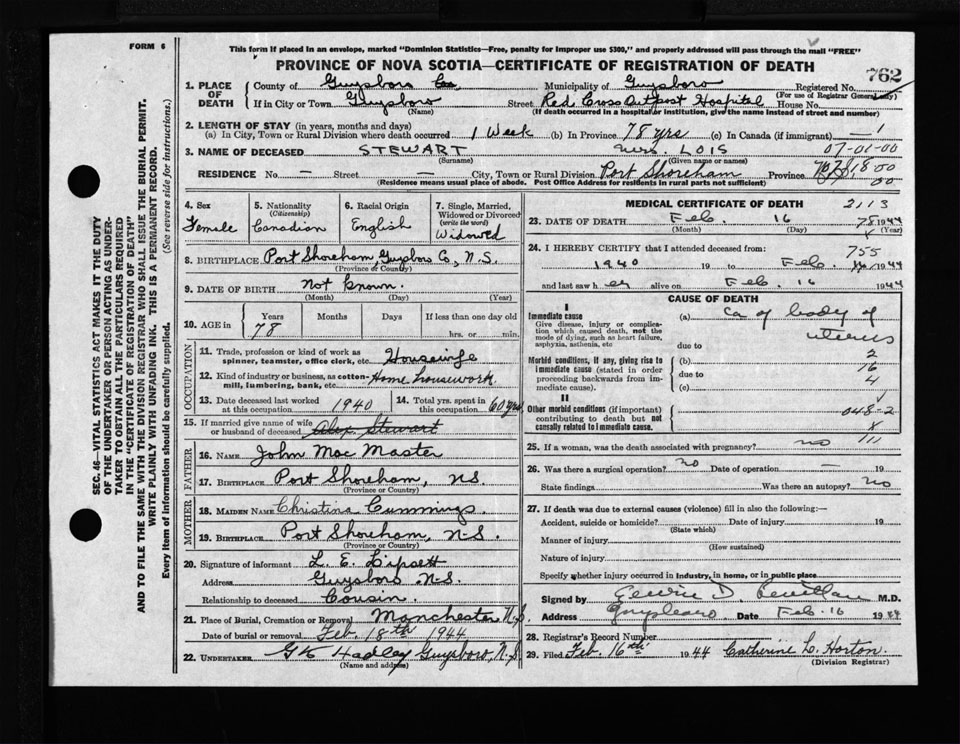 FORM 6
This form if placed in an envelope, marked "Dominion Statistics—Free, penalty for improper use $300," and properly addressed will pass through the mail "FREE"
PROVINCE OF NOVA SCOTIA—CERTIFICATE OF REGISTRATION OF DEATH
762
1. PLACE OF DEATH
County of Guysboro Co Municipality of Guysboro Registered No.
(For use of Registrar General only)
If in City or Town Guysboro Street Red Cross Outpost Hospital House No.
(Name) (If death occurred in a hospital or institution, give the name instead of street and number)
2. LENGTH OF STAY (in years, months and days)
(a) In City, Town or Rural Division where death occurred 1 Week (b) In Province 78 yrs (c) In Canada (if immigrant) — 1
3. NAME OF DECEASED STEWART Mrs. LOIS 07-01-00
(Surname) (Given name or names)
RESIDENCE No. — Street — City, Town or Rural Division Port Shoreham Province
(Residence means usual place of abode. Post Office Address for residents in rural parts not sufficient) 00
4. Sex Female
5. Nationality (Citizenship) Canadian
6. Racial Origin English
7. Single, Married, Widowed or Divorced (write the word) Widowed
8. BIRTHPLACE Port Shoreham, Guysboro Co, N.S.
(Province or Country)
9. DATE OF BIRTH Not known.
(Month) (Day) (Year)
10. AGE in Years 78 Months Days If less than one day old hrs. or min.
OCCUPATION
11. Trade, profession or kind of work as spinner, teamster, office clerk, etc. Housewife
12. Kind of industry or business, as cotton-mill, lumbering, bank, etc. Home housework
13. Date deceased last worked at this occupation 1940 14. Total yrs. spent in this occupation 60 yrs
15. If married give name of wife or husband of deceased Alex Stewart
FATHER
16. NAME John Mac Master
17. BIRTHPLACE Port Shoreham, N.S.
(Province or Country)
MOTHER
18. MAIDEN NAME Christina Cummings.
19. BIRTHPLACE Port Shoreham, N-S.
(Province or Country)
20. Signature of informant L. E. Lipsett
Address Guysboro N-S.
Relationship to deceased Cousin.
21. Place of Burial, Cremation or Removal Manchester N.S.
Date of burial or removal Feb. 18th 1944
22. UNDERTAKER G K Hadley Guysboro, N.S
(Name and address)
MEDICAL CERTIFICATE OF DEATH 2113
23. DATE OF DEATH Feb. 16 78 1944
(Month) (Day) (Year)
24. I HEREBY CERTIFY that I attended deceased from: 755
1940 19 to Feb. 1944
and last saw h er alive on Feb. 16 1944
CAUSE OF DEATH
I
Immediate cause (a) Ca of body of uterus
Give disease, injury or complication which caused death, not the mode of dying, such as heart failure, asphyxia, asthenia, etc
due to 2
Morbid conditions, if any, giving rise to immediate cause (stated in order proceeding backwards from immediate cause).
(b) 76
due to 4
(c)
II
Other morbid conditions (if important) contributing to death but not causally related to immediate cause.
048-2
8
25. If a woman, was the death associated with pregnancy? no 111
26. Was there a surgical operation? no Date of operation — 19
State findings Was there an autopsy? no
27. If death was due to external causes (violence) fill in also the following:—
Accident, suicide or homicide? Date of injury 19
(State which)
Manner of injury
(How sustained)
Nature of injury
Specify whether injury occurred in industry, in home, or in public place
Signed by M.D.
Address Guysboro Date Feb. 16 1944
28. Registrar's Record Number
29. Filed Feb. 16th 1944 Catherine L. Horton.
(Division Registrar)
SEC. 46—VITAL STATISTICS ACT MAKES IT THE DUTY
OF THE UNDERTAKER OR PERSON ACTING AS UNDER-
TAKER TO OBTAIN ALL THE PARTICULARS REQUIRED
IN THE "CERTIFICATE OF REGISTRATION OF DEATH"
AND TO FILE THE SAME WITH THE DIVISION REGISTRAR WHO SHALL ISSUE THE BURIAL PERMIT.
WRITE PLAINLY WITH UNFADING INK. THIS IS A PERMANENT RECORD.
Every item of information should be carefully supplied. (See reverse side for instructions.)